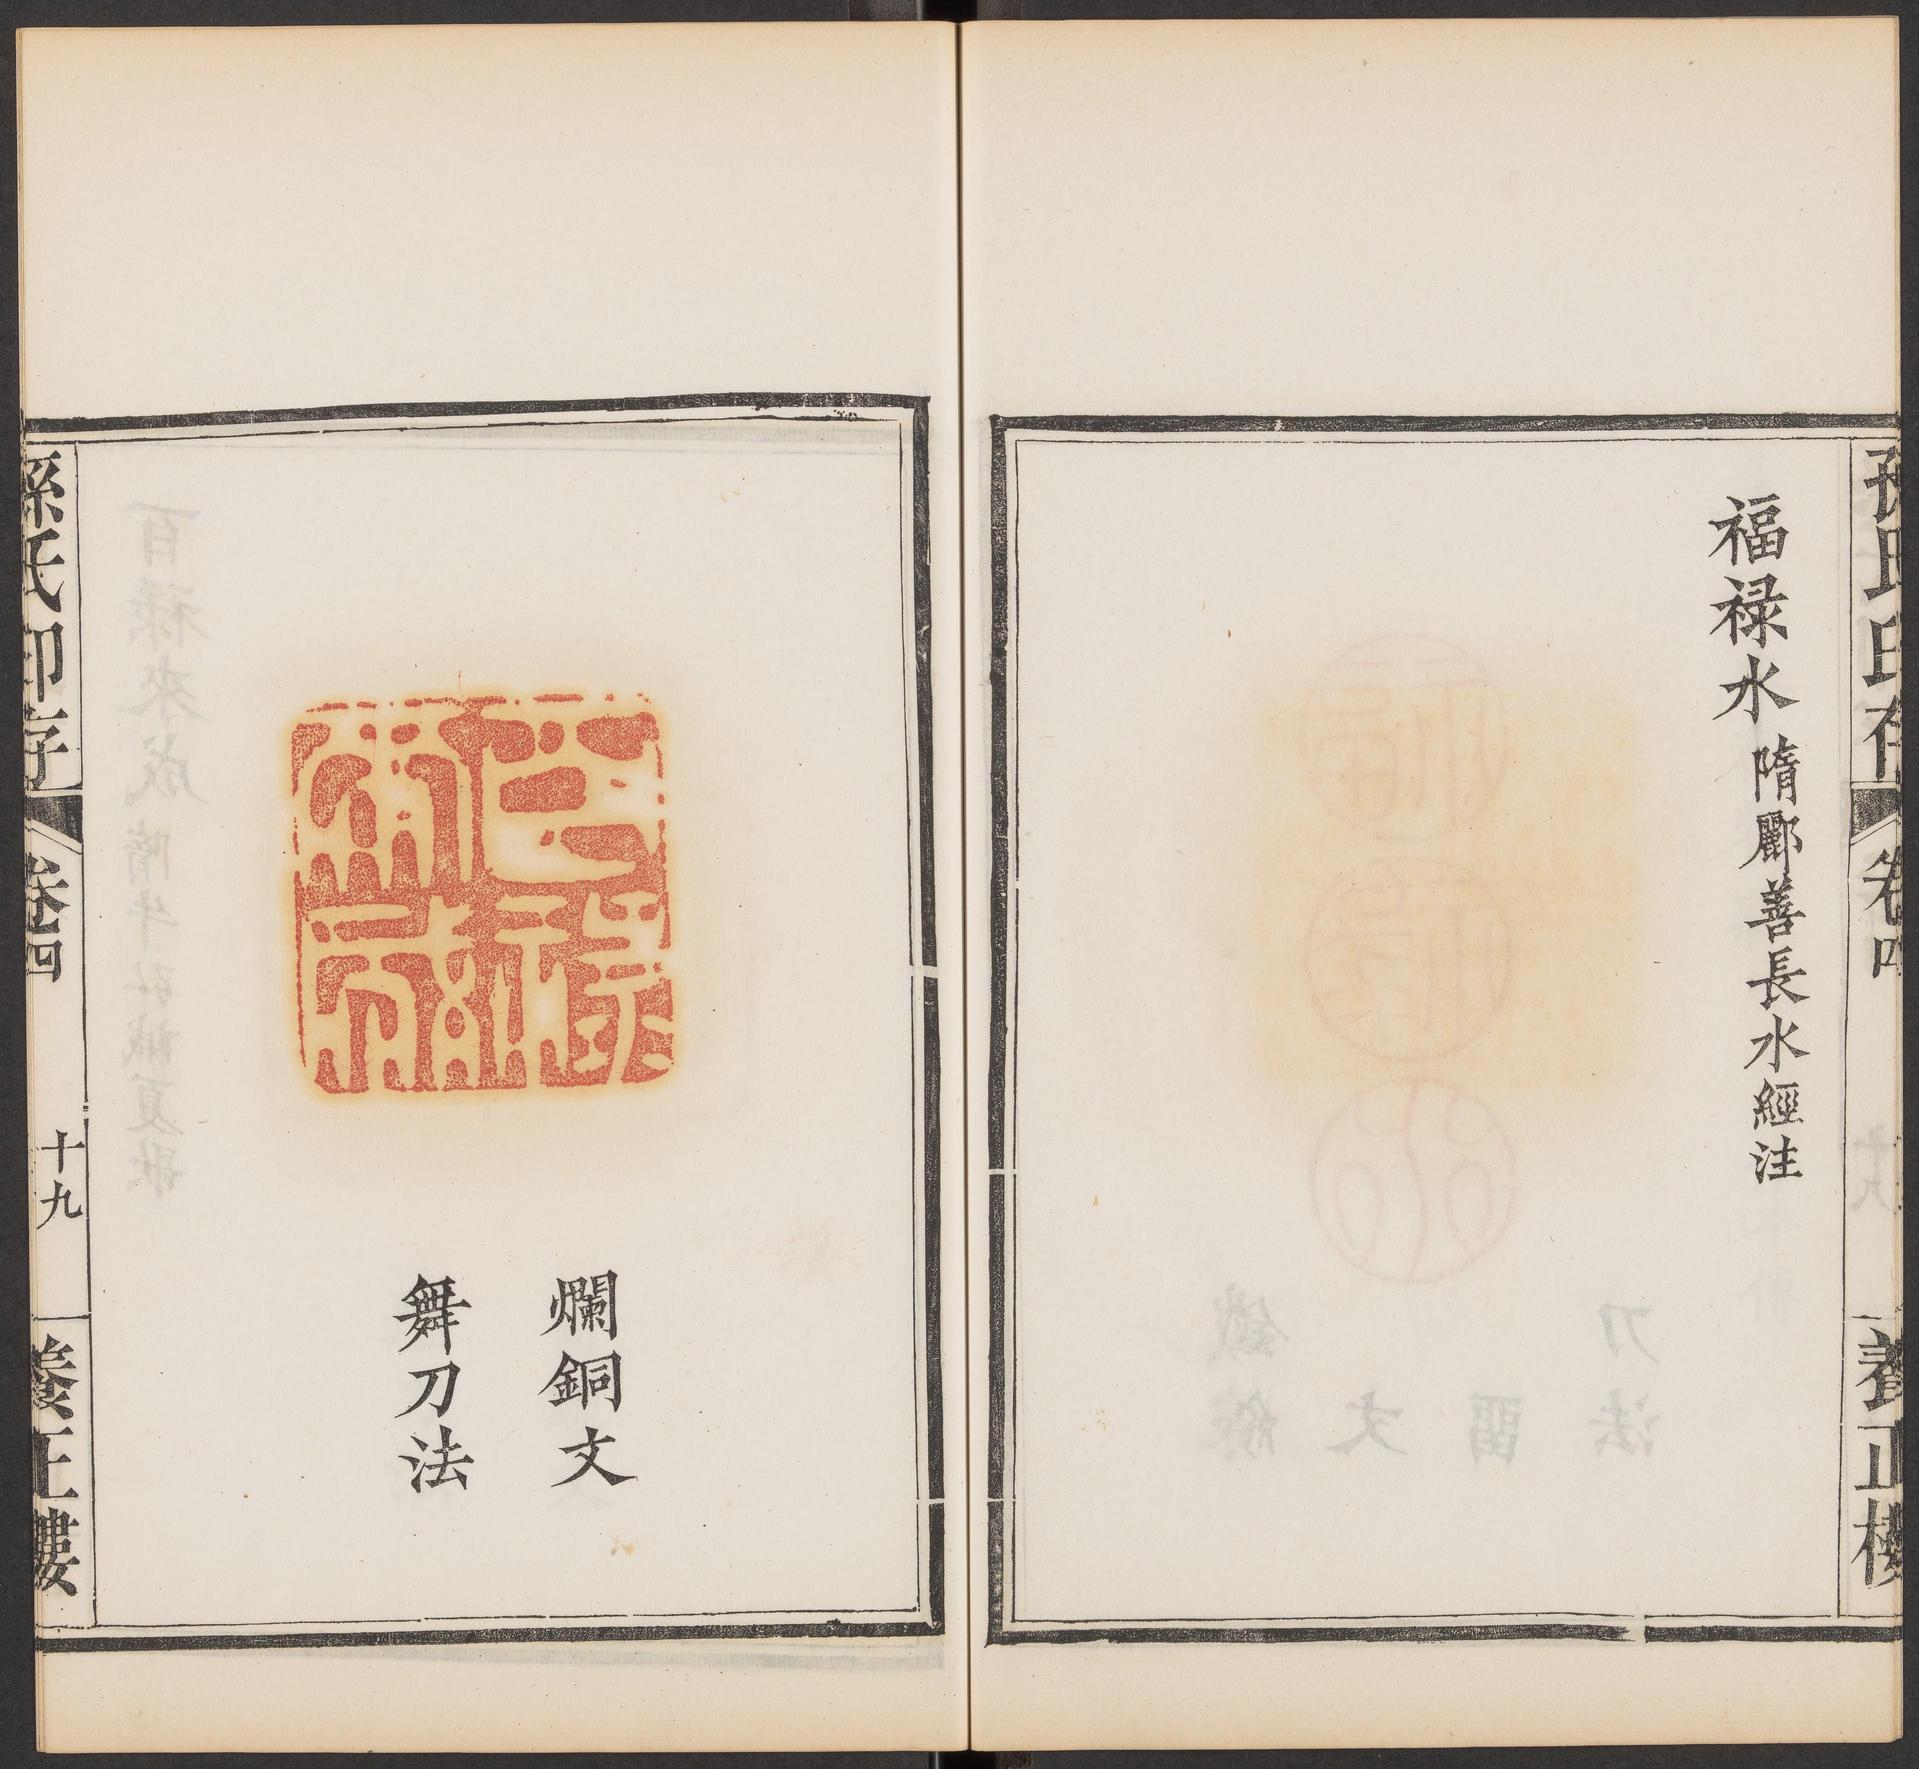 孫氏印存
卷四
養正樓
福禄水 隋酈善長水經注
爛銅文
舞刀法
孫氏印存
卷四
十九
養正樓